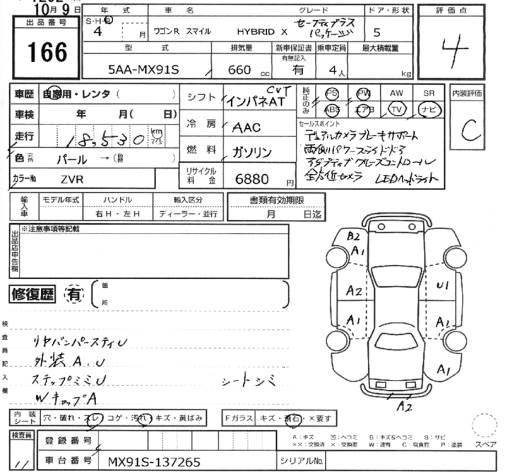 10月9日
出品番号
166
年式 車名 グレード ドア・形状
S・H・R
4 月 ワゴンR スマイル HYBRID X セーフティプラスパッケージ 5
型式 排気量 新車保証書 乗車定員 最大積載量
有無記入
5AA-MX91S 660 cc 有 4人 kg
評価点
4
車歴 自家用・レンタ( )
車検 年 月( )
走行 18,530 km
色 パール → ( )
カラーNo. ZVR
シフト インパネAT CVT
冷房 AAC
燃料 ガソリン
リサイクル料金 6880 円
純正のみ
PS PW AW SR
ABS エアB TV ナビ
セールスポイント
デュアルカメラブレーキサポート
両側パワースライドドア
アダプティブクルーズコントロール
全方位カメラ LEDヘッドライト
内装評価
C
輸入車
モデル年式 ハンドル 輸入区分
右H・左H ディーラー・並行
書類有効期限
月 日迄
出品店申告欄
※注意事項等記載
修復歴 有
箇所
検査員記入欄
リヤバンパースティU
外装A.U
ステップミミU シートシミ
WチップA
内装シート 穴・破れ・スレ コゲ・汚れ・キズ・黄ばみ
Fガラス キズ・飛石・×要す
検査員
登録番号
車台番号 MX91S-137265
シリアルNo.
A2
A1
A2
A1
A1
U1
A1
A2
A:キズ U:ヘコミ B:キズ&ヘコミ S:サビ
××:交換済 X:要交換 W:波有 C:腐食有 P:塗装
スペア